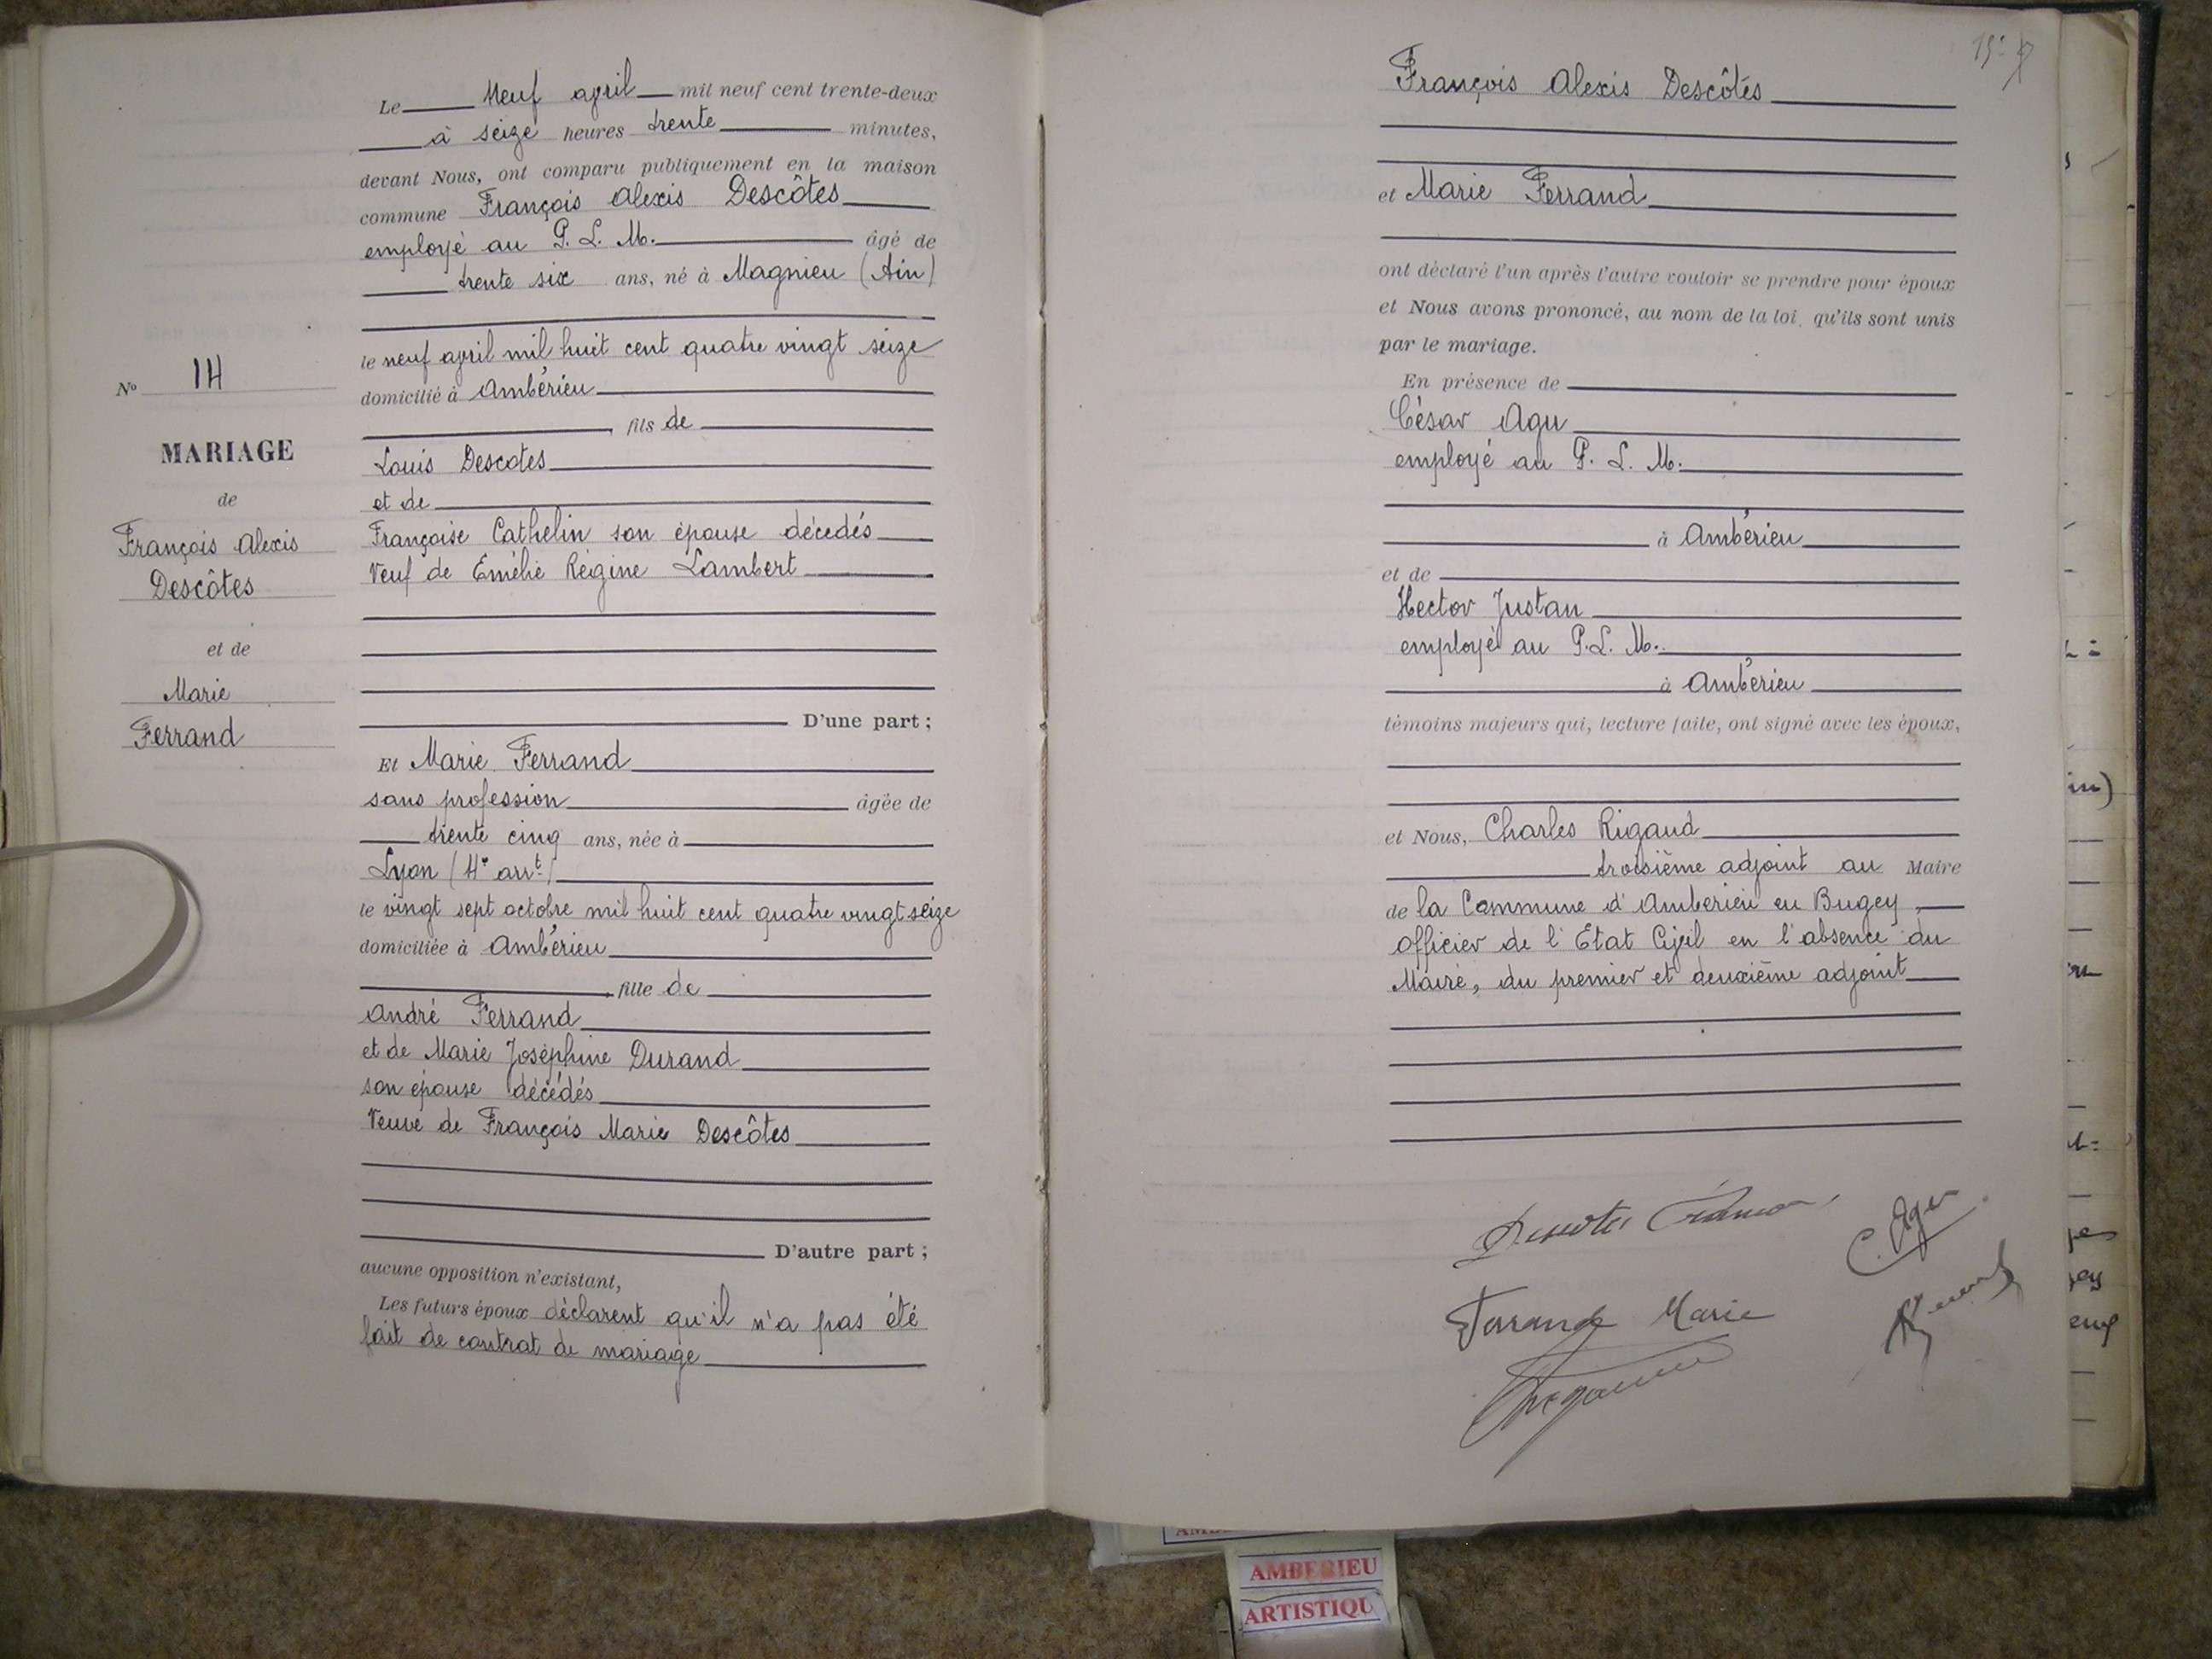 Le neuf avril mil neuf cent trente-deux
à seize heures trente minutes,
devant Nous, ont comparu publiquement en la maison
commune François Alexis Descôtes
employé au P. L. M. âgé de
trente six ans, né à Magnieu (Ain)
le neuf avril mil huit cent quatre vingt seize
domicilié à Ambérieu
, fils de
Louis Descotes
et de
Françoise Cathelin son épouse décédés
Veuf de Emélie Régine Lambert
D'une part ;
Et Marie Ferrand
sans profession âgée de
trente cinq ans, née à
Lyon (4e arrt)
le vingt sept octobre mil huit cent quatre vingt seize
domiciliée à Ambérieu
, fille de
André Ferrand
et de Marie Joséphine Durand
son épouse décédés
Veuve de François Marie Descôtes
D'autre part ;
aucune opposition n'existant,
Les futurs époux déclarent qu'il n'a pas été
fait de contrat de mariage
No 14
MARIAGE
de
François Alexis
Descôtes
et de
Marie
Ferrand
François Alexis Descôtés
et Marie Ferrand
ont déclaré l'un après l'autre vouloir se prendre pour époux
et Nous avons prononcé, au nom de la loi, qu'ils sont unis
par le mariage.
En présence de
César Agu
employé au P. L. M.
à Ambérieu
et de
Hector Justan
employé au P. L. M.
à Ambérieu
témoins majeurs qui, lecture faite, ont signé avec les époux,
et Nous, Charles Rigaud
troisième adjoint au Maire
de la Commune d'Ambérieu en Bugey,
officier de l'Etat Civil en l'absence du
Maire, du premier et deuxième adjoint
C. Agu
Ferrand Marie
AMBERIEU
ARTISTIQU